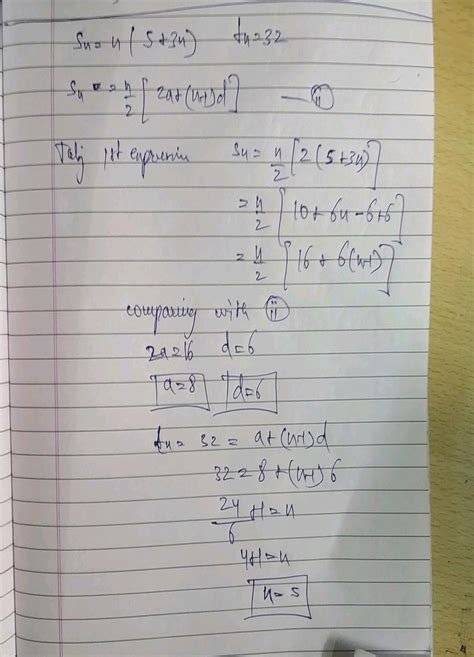 Sn = n ( 5+3n) tn = 32
Sn = n/2 [ 2a+(n-1)d ] — (ii)
1st Sn = n/2 [ 2 ( 5+3n) ]
= n/2 [ 10 + 6n - 6 + 6 ]
= n/2 [ 16 + 6(n-1) ]
comparing with (ii)
2a=16 d=6
a=8 d=6
tn = 32 = a+(n-1)d
32 = 8 +(n-1) 6
24/6 +1 = n
4+1 = n
n = 5